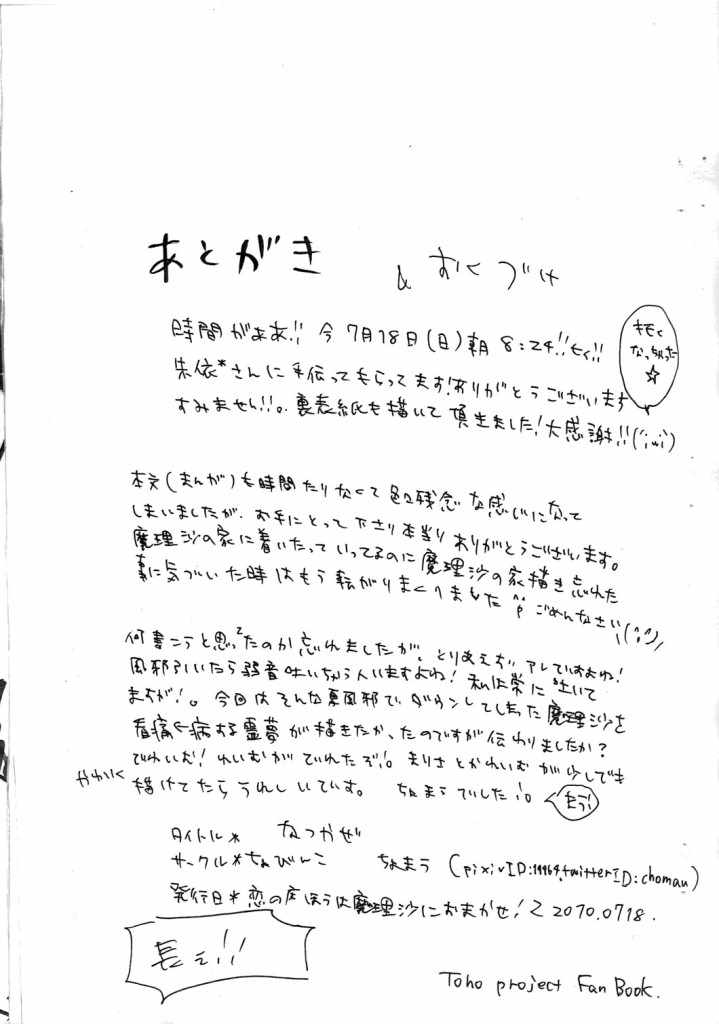 あとがき & おくづけ
時間がぁあ!! 今 7月18日(日)朝 8:24!!
朱依*さんに手伝ってもらってます!ありがとうございます
すみません!!。裏表紙も描いて頂きました!大感謝!!
☆
本文(まんが)も時間たりなくて色2残念な感じになって
しまいましたが、お手にとって下さり本当にありがとうございます。
魔理沙の家に着いたっていってるのに魔理沙の家描き忘れた
事に気づいた時はもう転がりまくりました ごめんなさい
何書こうと思ってたのか忘れましたが、とりあえずアレですよね!
風邪引いたら弱音吐いちゃう人いますよね! 私は常に吐いて
ますが!。今回はそんな夏風邪でダウンしてしまった魔理沙を
看病する霊夢が描きたかったのですが伝わりましたか?
でれいむ! れいむがでれたぞ!。まりさとかれいむが少しでも
かわいく
描けてたらうれしいです。 ちょまうでした!。
タイトル* なつかぜ
サークル*ちょびんこ ちょまう (pixivID:19964,twitterID:chomau)
発行日*恋の床ほうは魔理沙におまかせ!2 2010.0718.
長え!!
Toho project Fan Book.